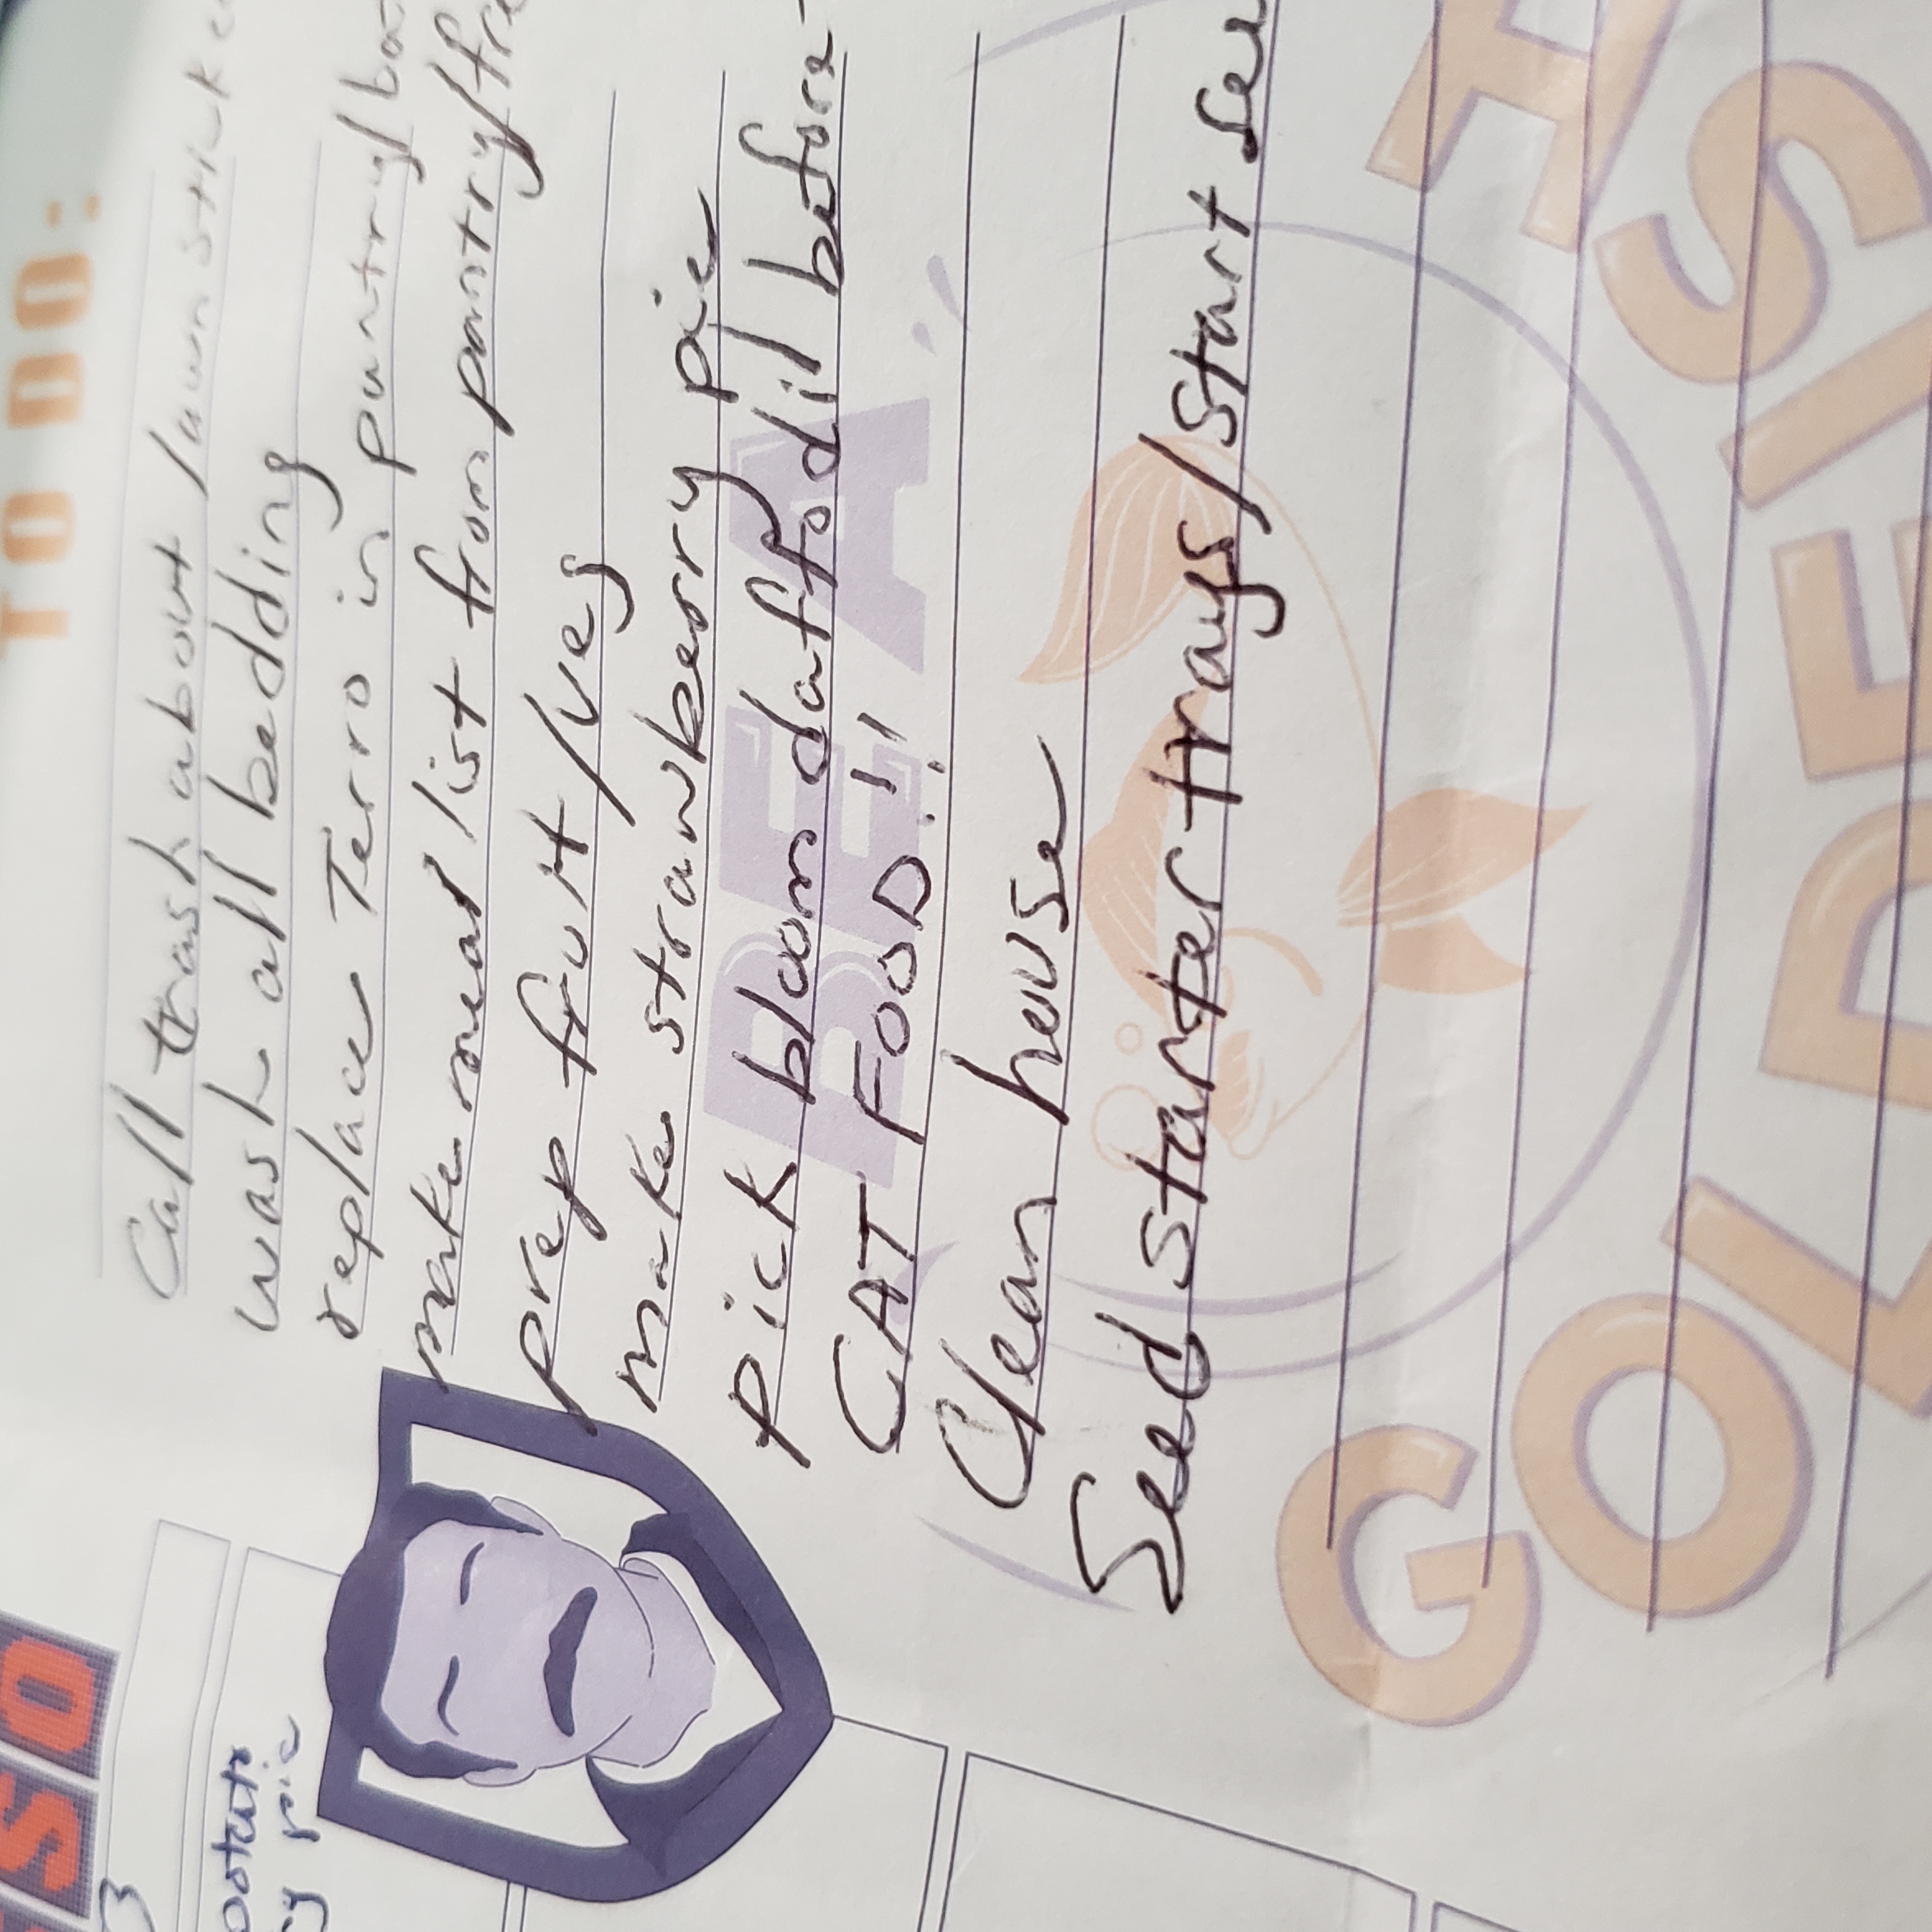 TO DO:
Call trash about lawn sticke
wash all bedding
replace Terro in pantry/ba
make meal list from pantry/fre
prep fruit/veg
make strawberry pie
pick bloom daffodil before
CAT FOOD!!
Clean house
Seed starter trays/start see
BE A
GOLDFISH
SO
3
y pie